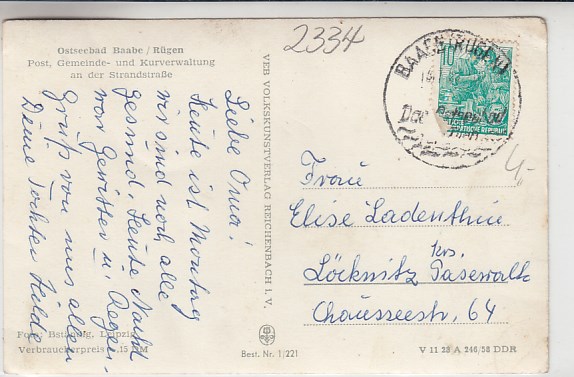 Ostseebad Baabe / Rügen
Post, Gemeinde- und Kurverwaltung
an der Strandstraße
2334
BAABE (RÜGEN)
Das
10
DEUTSCHE DEMOKRATISCHE REPUBLIK
4,-
Liebe Oma!
Heute ist Montag
wir sind noch alle
gesund. Heute Nacht
war Gewitter u. Regen.
Gruß von uns allen
Deine Tochter Hilde
VEB VOLKSKUNSTVERLAG REICHENBACH I. V.
Frau
Elise Ladenthin
Löcknitz Krs. Pasewalk
Chausseestr. 64
Leipzig
Verbraucherpreis 0,15 DM
Best. Nr. 1/221
V 11 28 A 246/58 DDR